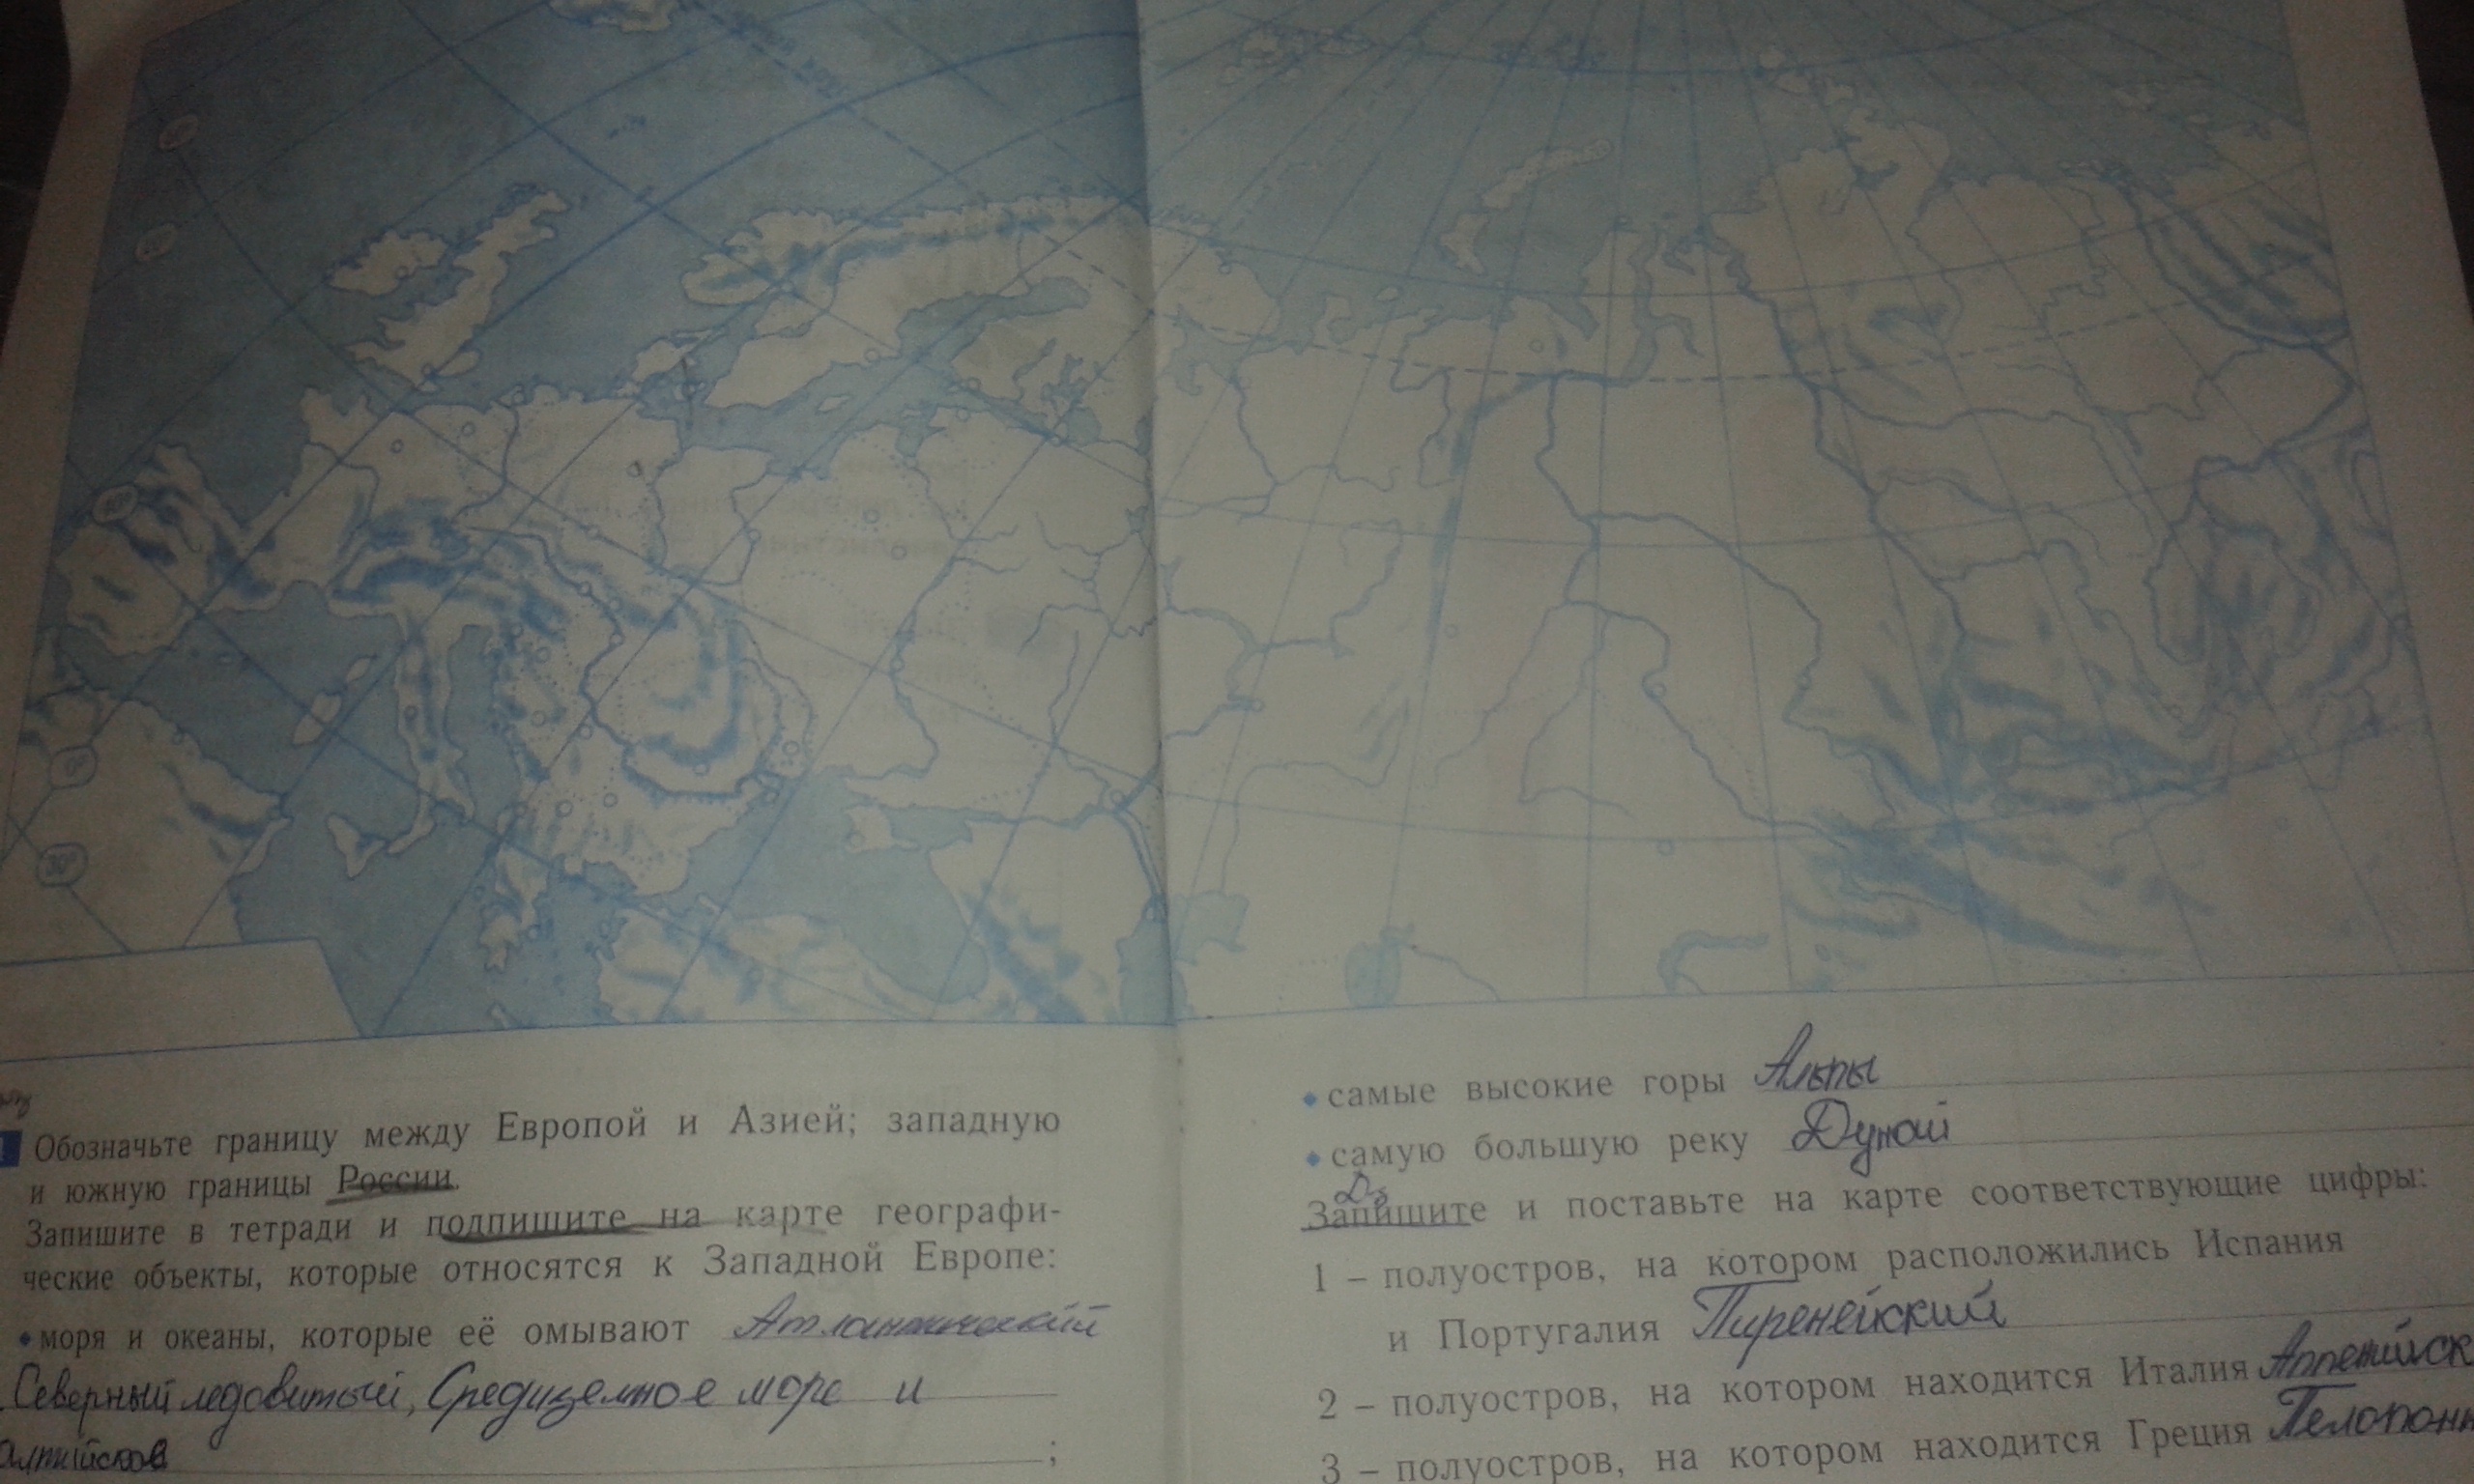 Обозначьте границу между Европой и Азией; западную
и южную границы России.
Запишите в тетради и подпишите на карте географи-
ческие объекты, которые относятся к Западной Европе:
• моря и океаны, которые её омывают Атлантический
Северный ледовитый, Средиземное море и
;
• самые высокие горы Альпы
• самую большую реку Дунай
Запишите и поставьте на карте соответствующие цифры:
1 – полуостров, на котором расположились Испания
и Португалия Пиренейский
2 – полуостров, на котором находится Италия Аппенийск
3 – полуостров, на котором находится Греция Пелопонн